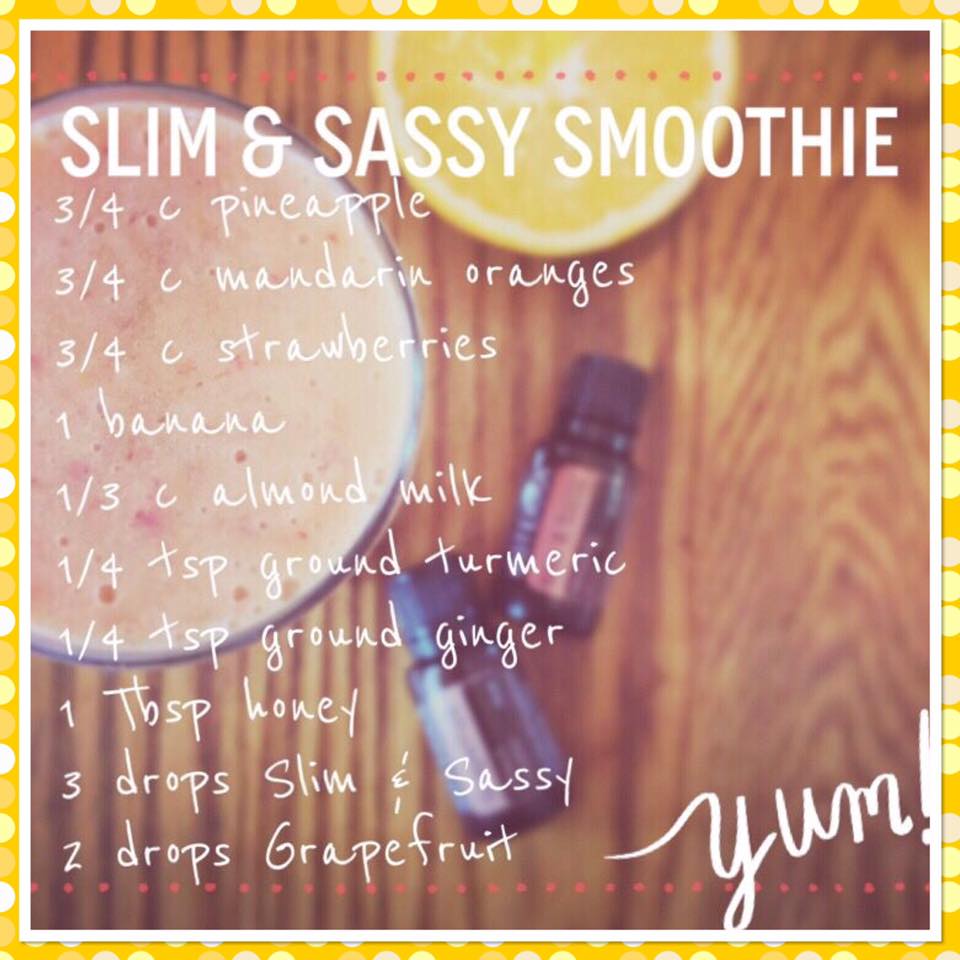 SLIM & SASSY SMOOTHIE
3/4 c pineapple
3/4 c mandarin oranges
3/4 c strawberries
1 banana
1/3 c almond milk
1/4 tsp ground turmeric
1/4 tsp ground ginger
1 Tbsp honey
3 drops Slim & Sassy
2 drops Grapefruit
yum!